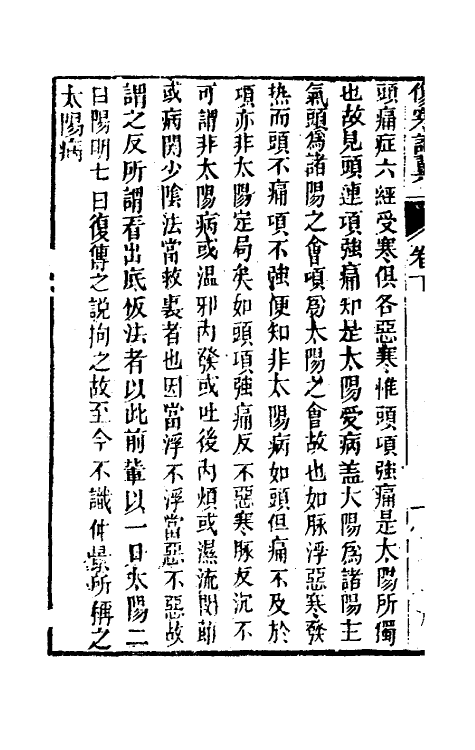 傷寒論翼 卷下
頭痛症六經受寒俱各惡寒惟頭項強痛是太陽所獨
也故見頭連項強痛知是太陽受病蓋太陽爲諸陽主
氣頭爲諸陽之會項爲太陽之會故也如脉浮惡寒發
熱而頭不痛項不強便知非太陽病如頭但痛不及於
項亦非太陽定局矣如頭項強痛反不惡寒脉反沉不
可謂非太陽病或溫邪內發或吐後內煩或濕流關節
或病関少陰法當救裏者也因當浮不浮當惡不惡故
謂之反所謂看出底板法者以此前輩以一日太陽二
日陽明七日復傳之說拘之故至今不識仲景所稱之
太陽病